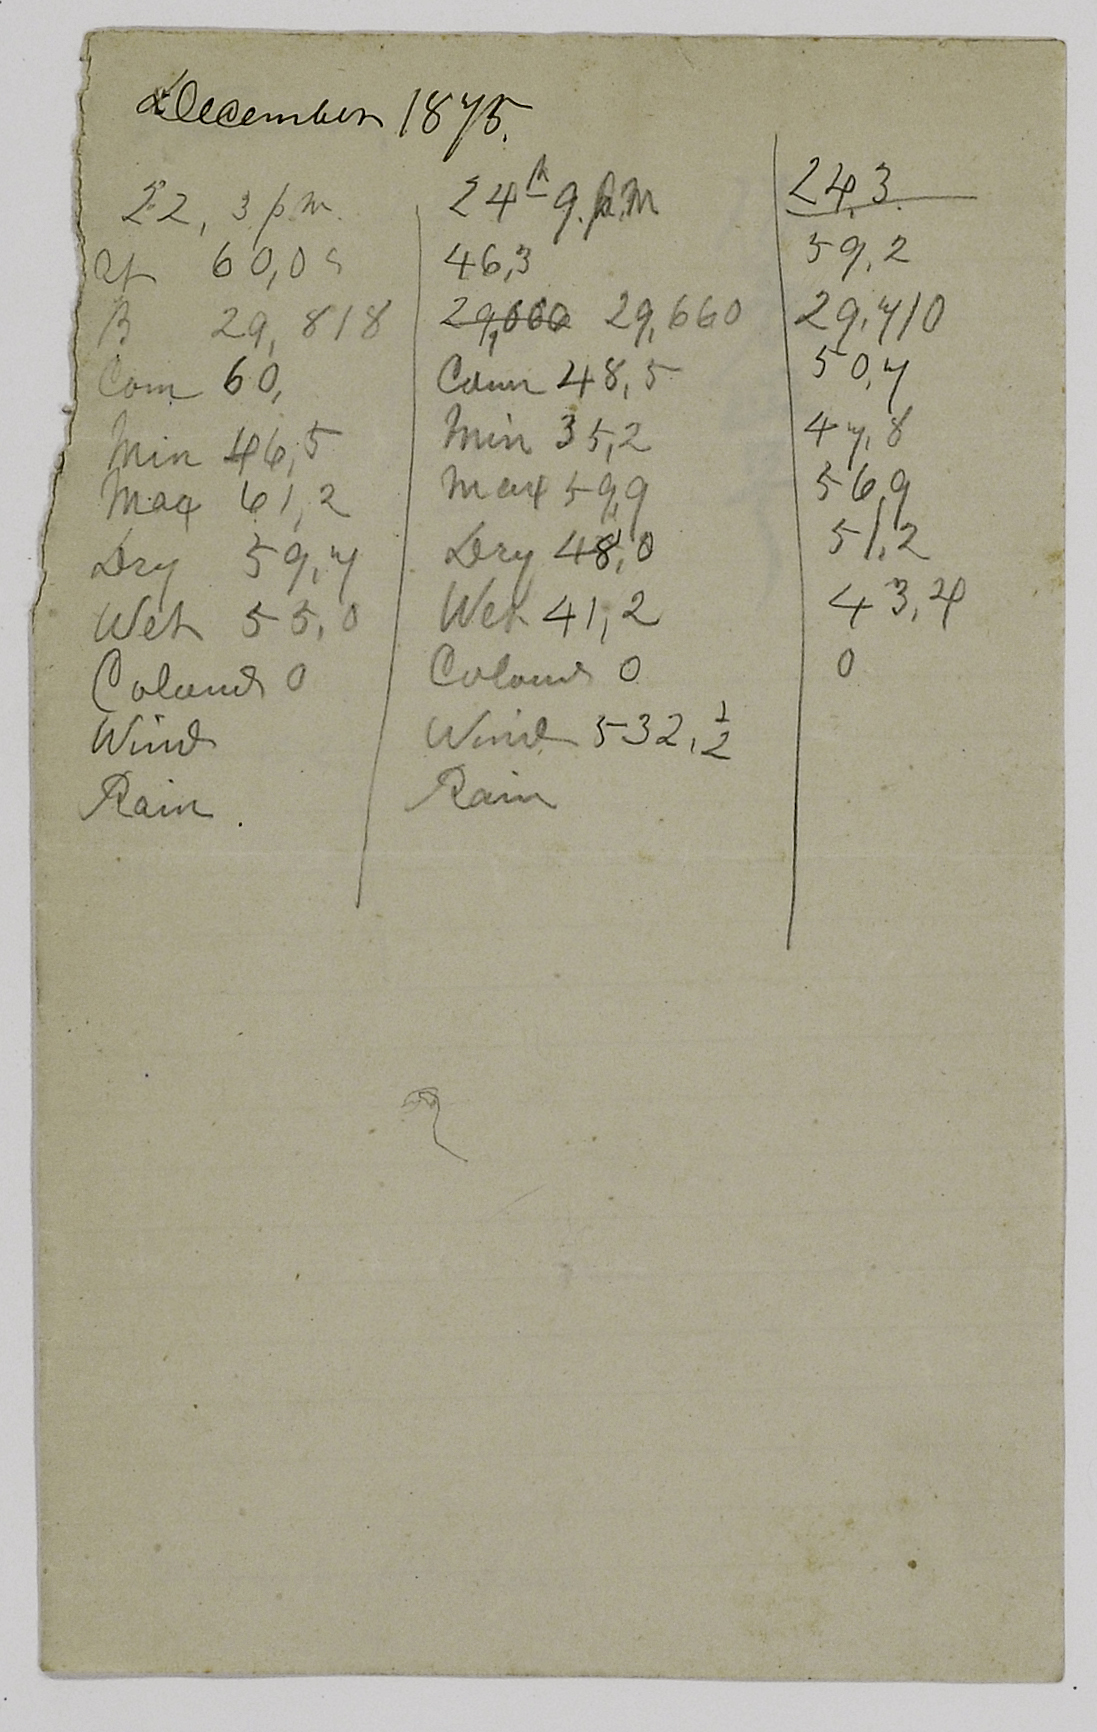 December 1875.
22, 3 p.m. 24th 9. A.M 24,3.
at 60,05 46,3 59,2
B 29,818 29,660 29,710
Com 60, Com 48,5 50,7
Min 46,5 Min 35,2 47,8
Max 61,2 Max 59,9 56,9
Dry 59,7 Dry 48,0 51,2
Wet 55,0 Wet 41,2 43,4
Colouds 0 Colouds 0 0
Wind Wind 532,1/2
Rain. Rain